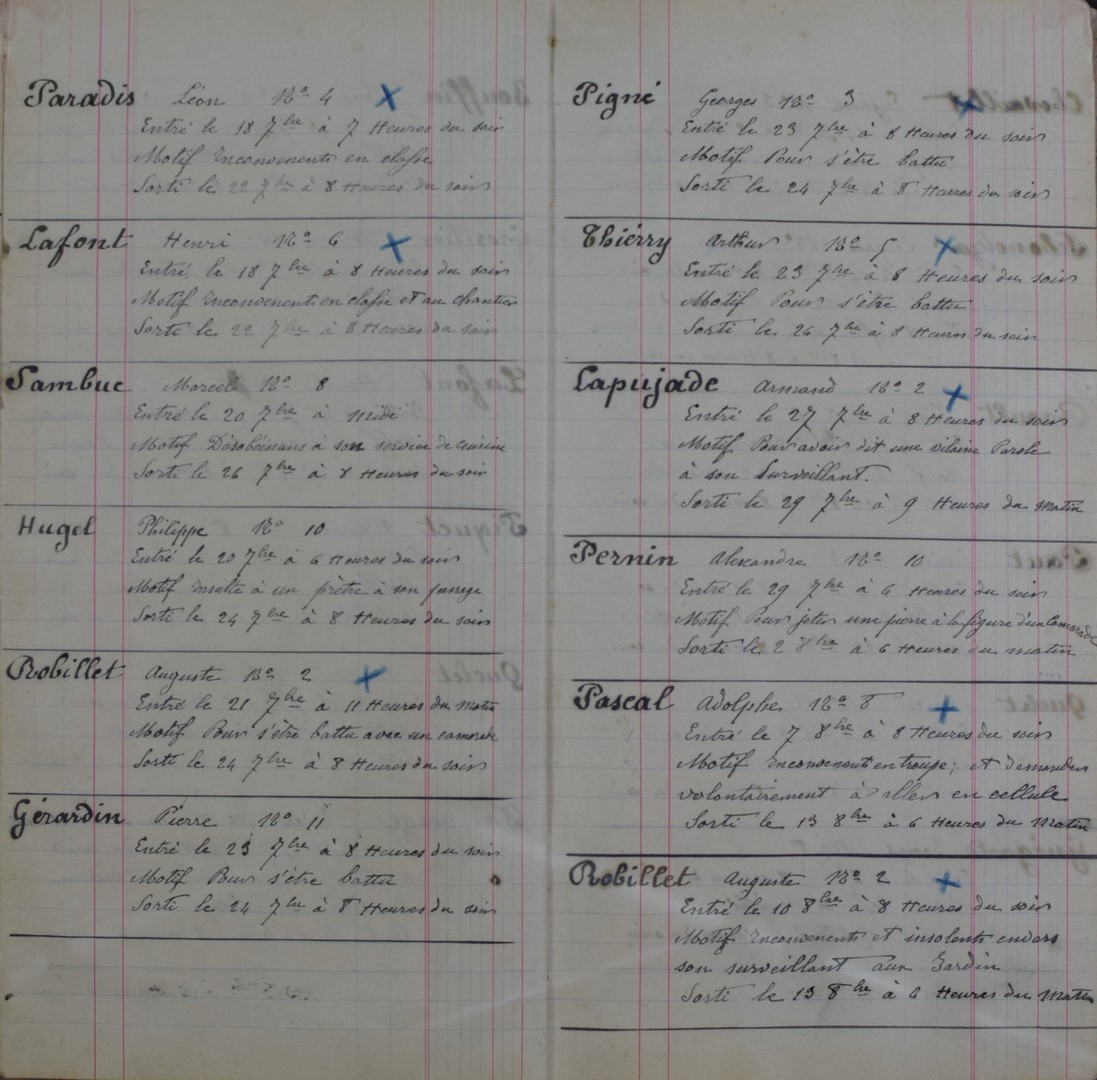 Paradis Léon No 4
Entré le 18 7bre à 7 Heures du soir
Motif Inconvenents en classe
Sorti le 22 7bre à 8 Heures du soir
Lafont Henri No 6
Entré le 18 7bre à 8 Heures du soir
Motif Inconvenents en classe et au chantier
Sorti le 22 7bre à 8 Heures du soir
Sambuc Marcel No 8
Entré le 20 7bre à midi
Motif Désobéinans à son service de cuisine
Sorti le 26 7bre à 8 Heures du soir
Hugel Philippe No 10
Entré le 20 7bre à 6 Heures du soir
Motif insulte à un prêtre à son passage
Sorti le 24 7bre à 8 Heures du soir
Robillet Auguste No 2
Entré le 21 7bre à 11 Heures du matin
Motif Pour s'être battu avec un camarade
Sorti le 24 7bre à 8 Heures du soir
Gérardin Pierre No 11
Entré le 23 7bre à 8 Heures du soir
Motif Pour s'être battu
Sorti le 24 7bre à 8 Heures du soir
Pigné Georges No 3
Entré le 23 7bre à 8 Heures du soir
Motif Pour s'être battu
Sorti le 24 7bre à 8 Heures du soir
Thiérry Arthur No 5
Entré le 23 7bre à 8 Heures du soir
Motif Pour s'être battu
Sorti le 26 7bre à 8 Heures du soir
Lapujade Armand No 2
Entré le 27 7bre à 8 Heures du soir
Motif Pour avoir dit une vilaine Parole
à son Surveillant.
Sorti le 29 7bre à 9 Heures du Matin
Pernin Alexandre No 10
Entré le 29 7bre à 6 Heures du soir
Motif Pour jeter une pierre à la figure d'un Camarade
Sorti le 2 8bre à 6 Heures du matin
Pascal Adolphe No 8
Entré le 7 8bre à 8 Heures du soir
Motif Inconvenent en troupe; et demander
volontairement à aller en cellule
Sorti le 13 8bre à 6 Heures du Matin
Robillet Auguste No 2
Entré le 10 8bre à 8 Heures du soir
Motif Inconvenents et insolents envers
son surveillant aux Jardin
Sorti le 13 8bre à 6 Heures du Matin